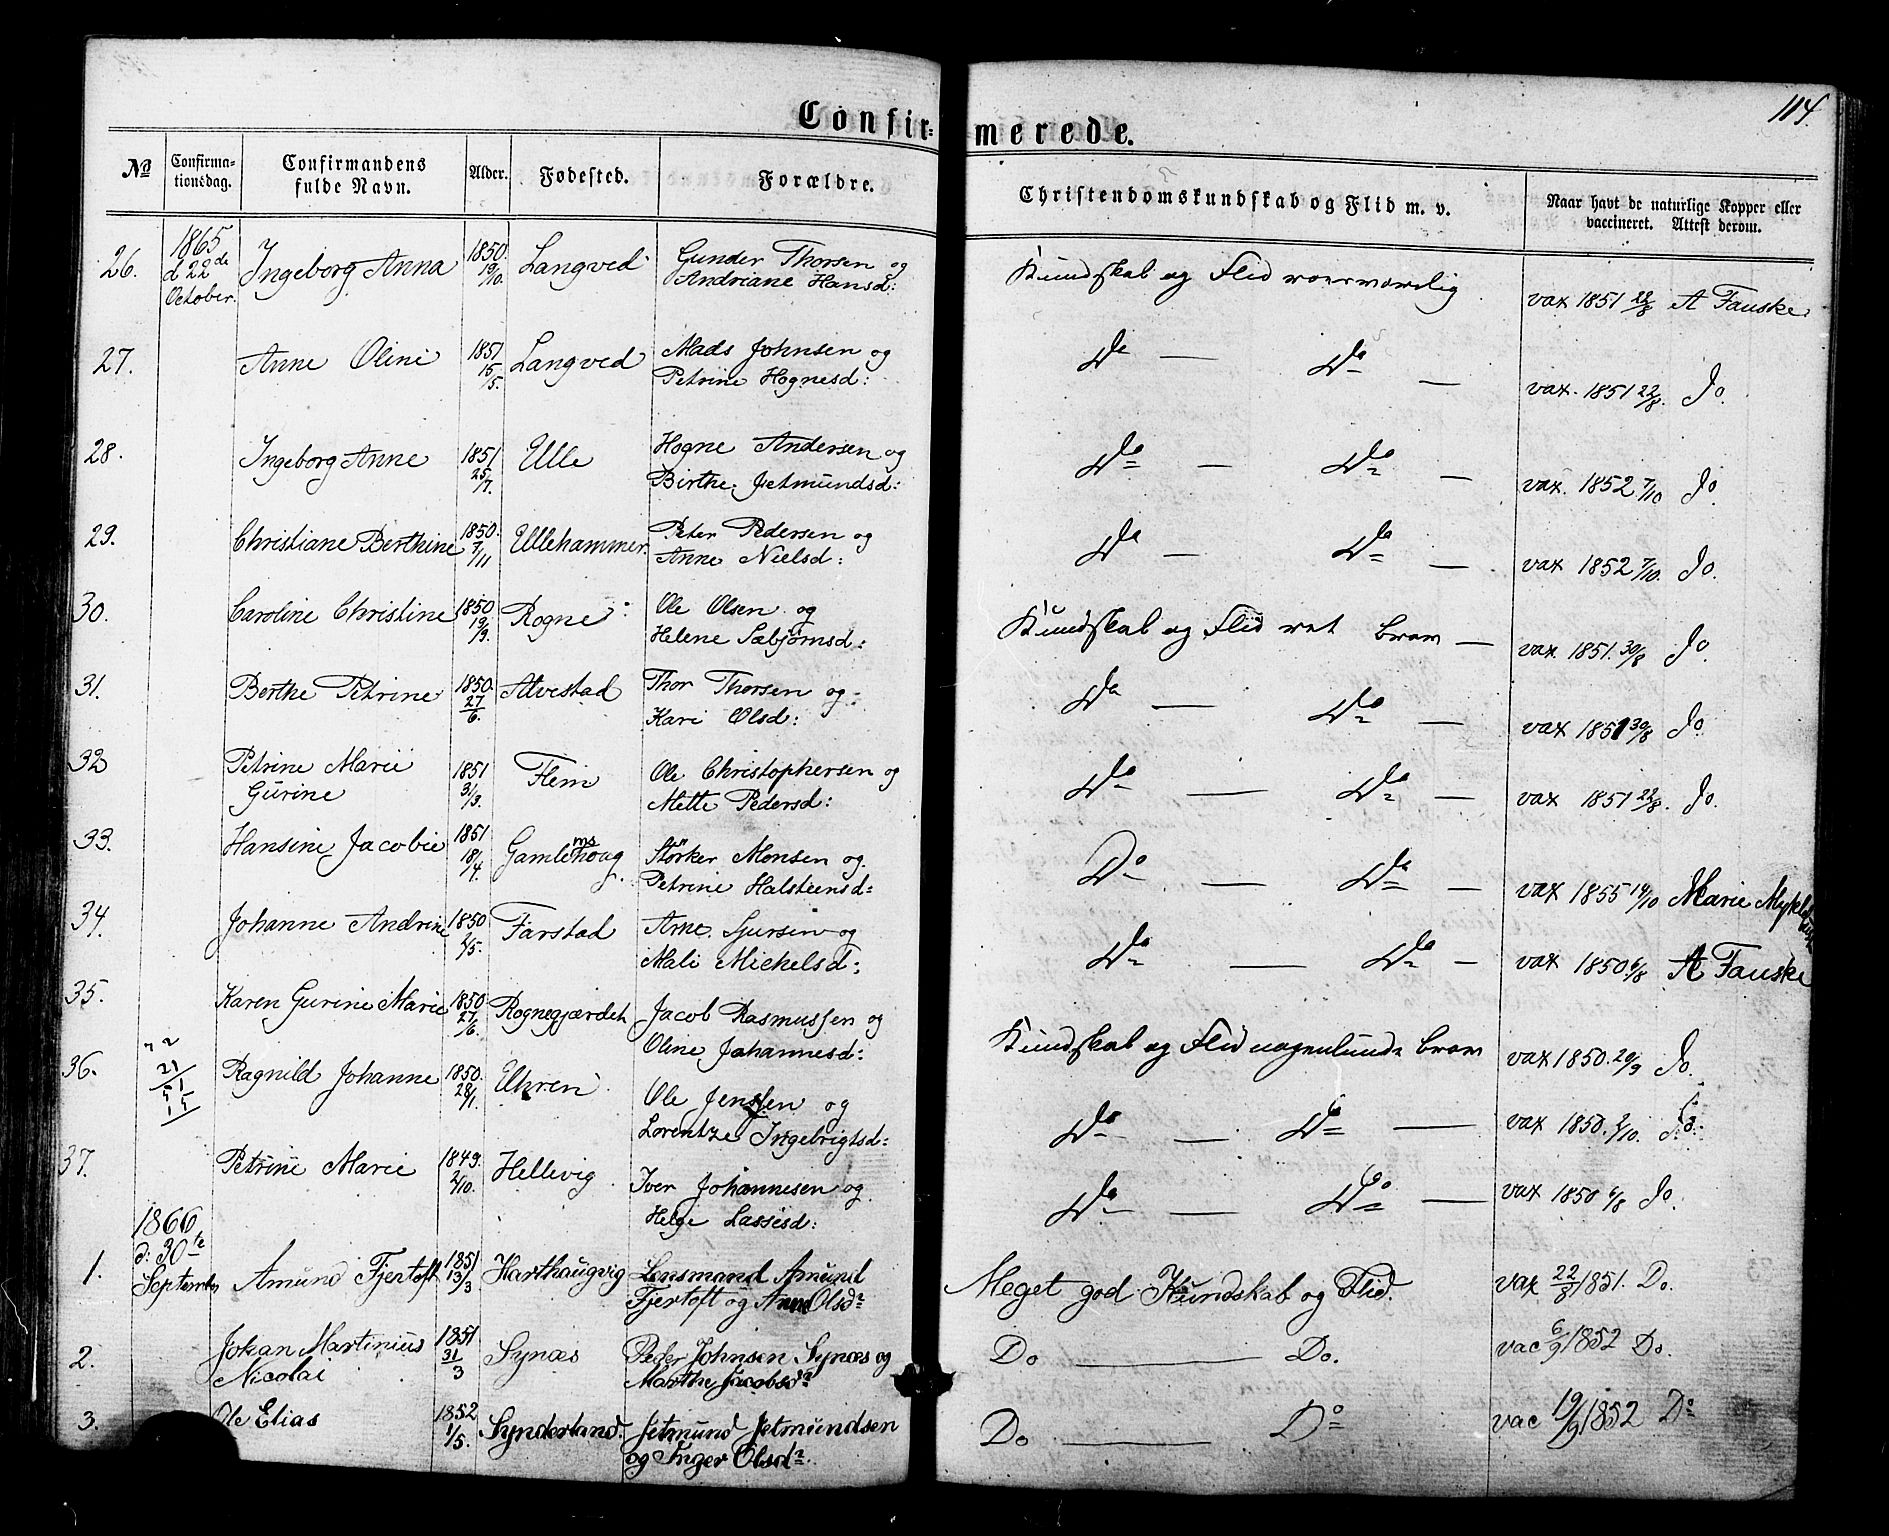 114.
Confir= merede.
No Confirma-tionsdag. Confirmandens fulde Navn. Alder. Fødested. Forældre. Christendomskundskab og Flid m. v. Naar havt de naturlige Kopper eller vaccineret. Attest derom.
26. 1865 d 22de October. Ingeborg Anna 1850. 19/10. Langved Gunder Thorsen og Andriane Hansd: Kundskab og Flid vax 1851 22/8 A Fauske
27. Anne Oline 1851 15/5. Langved Mads Johnsen og Petrine Hognesd: Do — Do — vax. 1851 22/8. Do.
28. Ingeborg Anne 1851 25/7. Ulle Hogne Andersen og Birthe Jetmundsd: Do — Do — vax. 1852 7/10 Do
29. Christiane Berthine 1850. 7/11 Ullehammer. Peter Pedersen og Anne Nielsd: Do — Do — vax 1852 7/10. Do.
30. Caroline Christine 1850. 19/9. Rogne Ole Olsen og Helene Sæbjørnsd: Kundskab og Flid ret brav — vax. 1851. 30/8 Do
31. Berthe Petrine 1850. 27/6. Alvestad Thor Thorsen og Kari Olsd: Do — Do — vax 1851 30/8 Do
32 Petrine Marie Gurine 1851 31/3. Flem Ole Christophersen og Mette Pedersd: Do — Do — vax 1851 22/8. Do.
33. Hansine Jacobie 1851 18/4. Gamlemshoug Størker Monsen og Petrine Halsteensd= Do — Do — vax 1855 14/10 Marie
34. Johanne Andrine 1850 2/5. Farstad Arne Sjursen og Mali Mickelsd: Do — Do — vax 1850 6/8 A Fauske
35. Karen Gurine Marie 1850 27/6. Rognegjærdet Jacob Rasmussen og Oline Johannesd: Kundskab og Flid nogenlunde brav vax 1850. 20/9 Do.
36. Ragnild Johanne 1850. 28/1. Ole Jenssen og Lorentze Ingebrigtsd: Do — Do — vax 1850. 2/10. Do.
37. Petrine Marie 1849. 2/10. Hellevig Iver Johannesen og Helge Lassesd: Do — Do — vax 1850 6/8 Do.
1. 1866 d: 30te September Amund Fjertoft 1851 13/3 Harthaugvig Lensmand Amund Fjertoft og Anne Olsdr Meget god Kundskab og Flid. vax 22/8 1851. Do.
2. Johan Martinius Nicolai 1851 31/3 Synæs Peder Johnsen Synæs og Marthe Jacobsdr Do — Do. vac 6/9 1852 Do.
3. Ole Elias 1852 1/5. Synderland. Jetmund Jetmundsen og Inger Olsdr. Do — Do vac 19/9 1852 Do